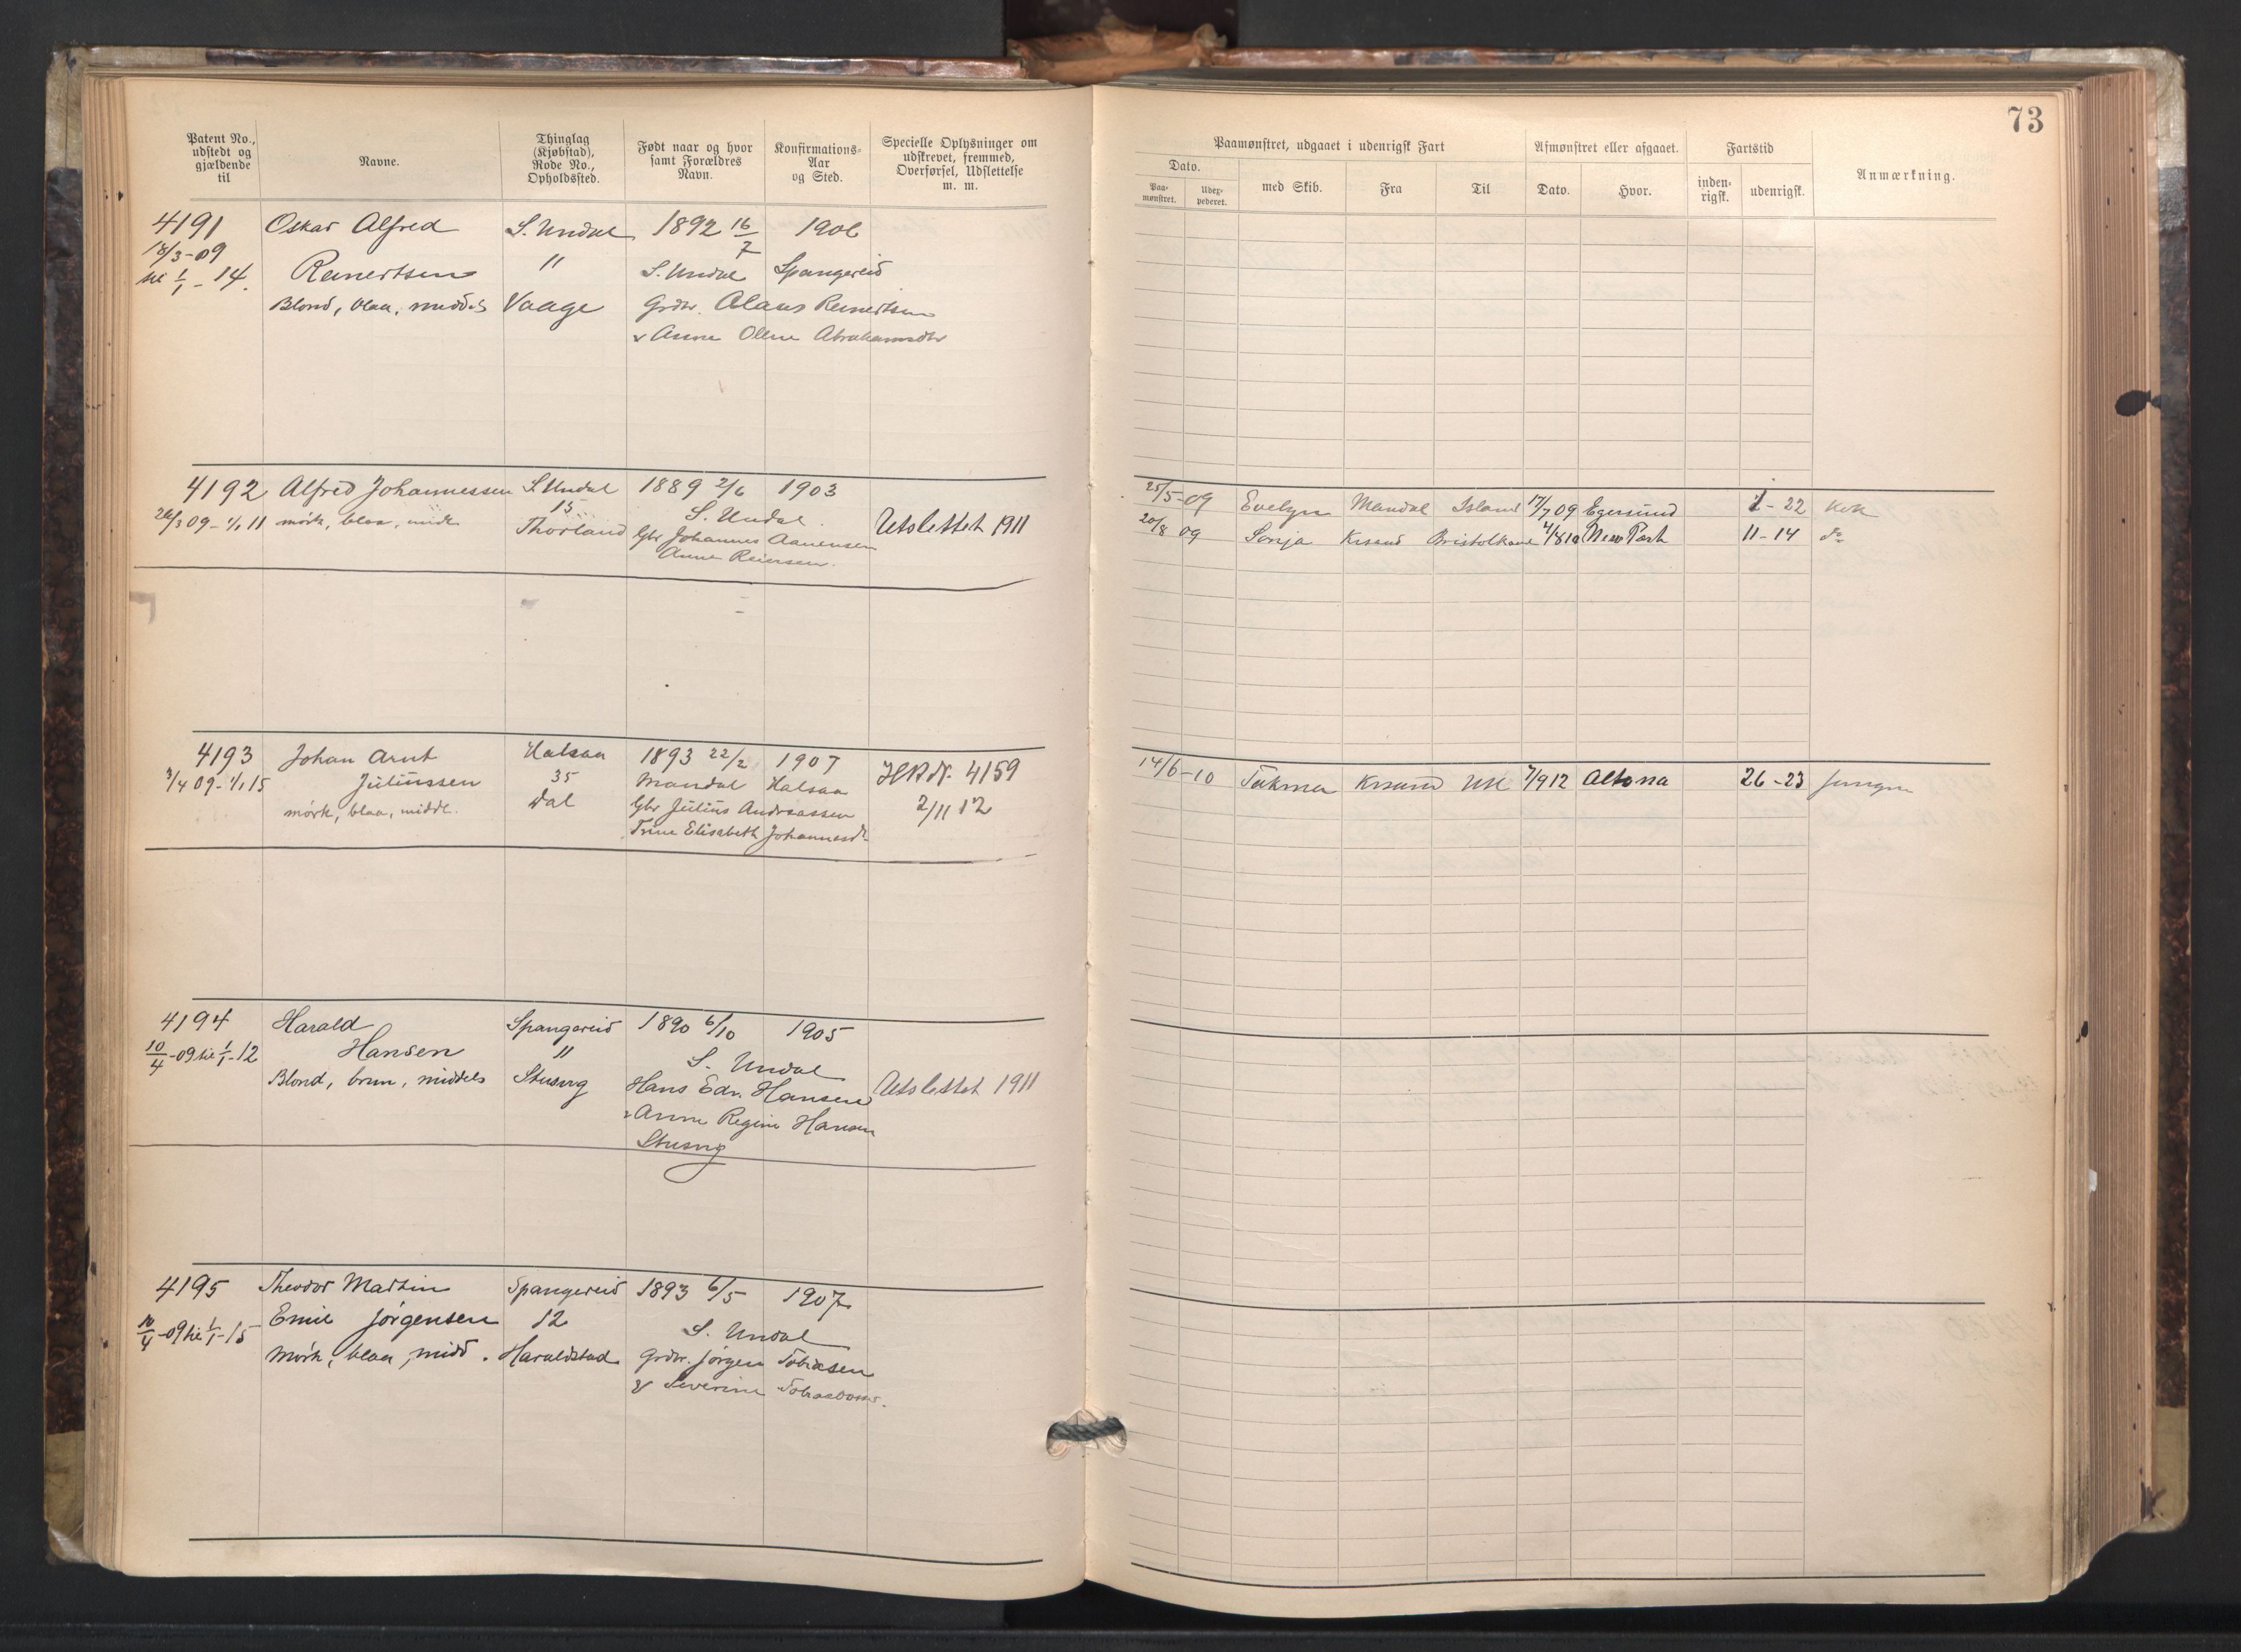 73
Patent No., udstedt og gjældende til
Navne.
Thinglag (Kjøbstad), Rode No., Opholdssted.
Født naar og hvor samt Forældres Navn.
Konfirmations-Aar og Sted.
Specielle Oplysninger om udskrevet, fremmed, Overførsel, Udslettelse m. m.
Paamønstret, udgaaet i udenrigsk Fart
Afmønstret eller afgaaet.
Fartstid
Dato.
Paa-mønstret.
Udex-pederet.
med Skib.
Fra
Til
Dato.
Hvor.
inden-rigsk.
udenrigsk.
Anmærkning.
4191 Oskar Alfred S. Undal 1892 16/7 1906
18/3-09 Reinertsen " S. Undal Spangereid
til 1/1-14.
Blond, blaa, middels Vaage Grdbr. Olaus Reinertsen
& Anne Oline Abrahamsdtr
4192 Alfred Johannessen S. Undal 1889 2/6 1903
15 S. Undal.
/3 09-1/1 11 mørk, blaa, midl. Thorland Gbr Johannes Aanensen Utslettet 1911
Anne Reiersen.
25/5-09 Evelyn Mandal Island 17/7 09 Egersund 1-22 Kok
20/8 09 Sonja Krsand Bristolkanal 4/8 10 New Port 11-14 do
4193 Johan Arnt Halsaa 1893 22/2 1907
3/4 09-1/1 15 Juliussen 35 Mandal Halsaa HB Nr. 4159
mørk, blaa, middl. Dal Gbr Julius Andreassen 2/11 12
Trine Elisabeth Johannesdt
14/6-10 Krsand 7/9 12 Altona 26-23 Jungm
4194 Harald Spangereid 1890 6/10 1905
10/4-09 til 1/1-12 Hansen " S. Undal
Blond, brun, middels Stusvig Hans Edv. Hansen Utslettet 1911
& Anne Regine Hansen
Stusvig
4195 Theodor Martin Spangereid 1893 6/5 1907
10/4-09 til 1/1-15 Emil Jørgensen 12 S. Undal
Mørk, blaa, midd. Haraldstad Grdbr. Jørgen Tobiasen
& Severine Tobiasdatter.